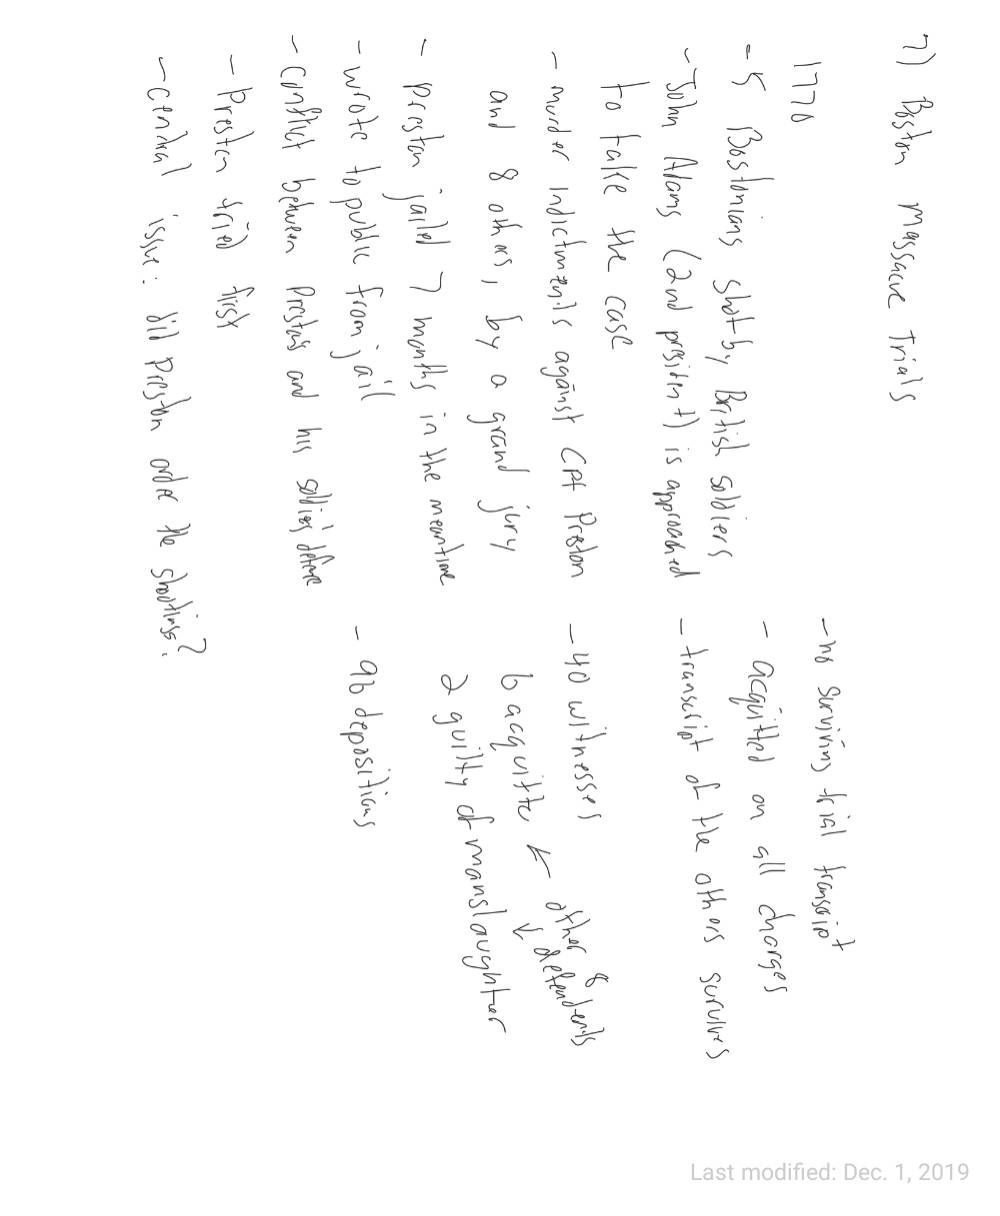 7) Boston Massacre Trials
1770
- 5 Bostonians shot by British soldiers
- John Adams (2nd president) is approached
to take the case
- murder indictments against CPt Preston
and 8 others, by a grand jury
- Preston jailed 7 months in the meantime
- wrote to public from jail
- conflict between Preston's and his soldiers' defense
- Preston tried first
- central issue: did Preston order the shootings?
- no surviving trial transcript
- acquitted on all charges
- transcript of the others survives
- 40 witnesses
other 8
defendents
6 acquitte ←
↓
2 guilty of manslaughter
- 96 depositions
Last modified: Dec. 1, 2019